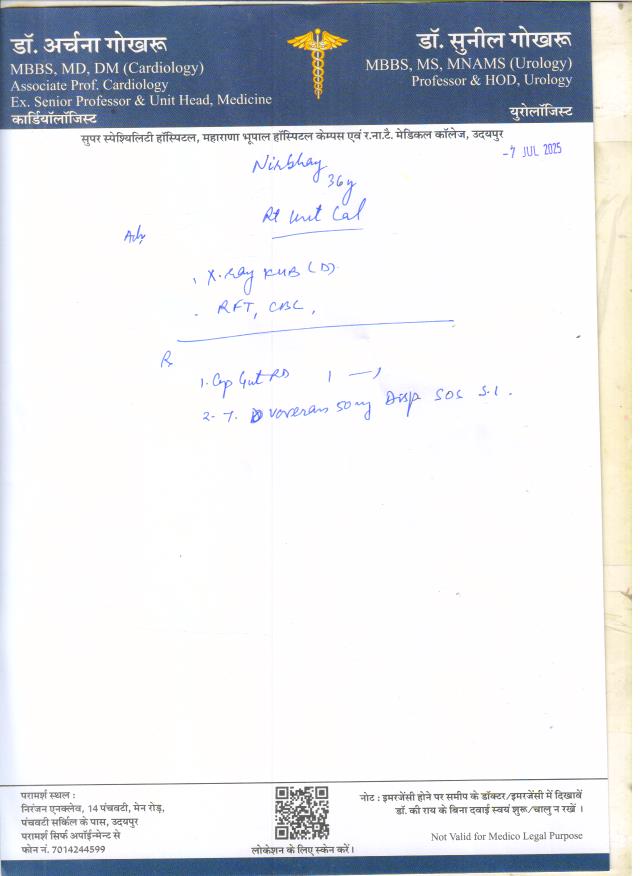 डॉ. अर्चना गोखरू
MBBS, MD, DM (Cardiology)
Associate Prof. Cardiology
Ex. Senior Professor & Unit Head, Medicine
कार्डियॉलॉजिस्ट
डॉ. सुनील गोखरू
MBBS, MS, MNAMS (Urology)
Professor & HOD, Urology
युरोलॉजिस्ट
सुपर स्पेश्यिलिटी हॉस्पिटल, महाराणा भूपाल हॉस्पिटल केम्पस एवं र.ना.टै. मेडिकल कॉलेज, उदयपुर
-7 JUL 2025
Nirbhay
36y
Rt Cal
Adv
X-ray KUB (D)
RFT, CBC,
Rx
1. Cap RD 1 — 1
2. T. Voveran 50mg Disp SOS
परामर्श स्थल :
निरंजन एनक्लेव, 14 पंचवटी, मेन रोड़,
पंचवटी सर्किल के पास, उदयपुर
परामर्श सिर्फ अपॉईन्मेन्ट से
फोन नं. 7014244599
लोकेशन के लिए स्केन करें।
नोट : इमरजेंसी होने पर समीप के डॉक्टर/इमरजेंसी में दिखावें
डॉ. की राय के बिना दवाई स्वयं शुरू/चालु न रखें ।
Not Valid for Medico Legal Purpose